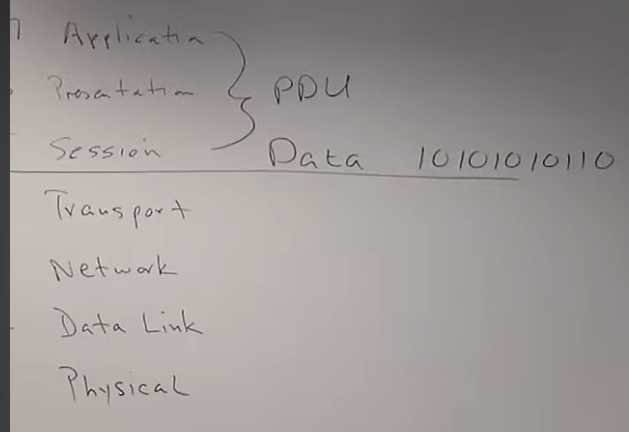 7 Application
Presentation } PDU
Session Data 10101010110
Transport
Network
Data Link
Physical